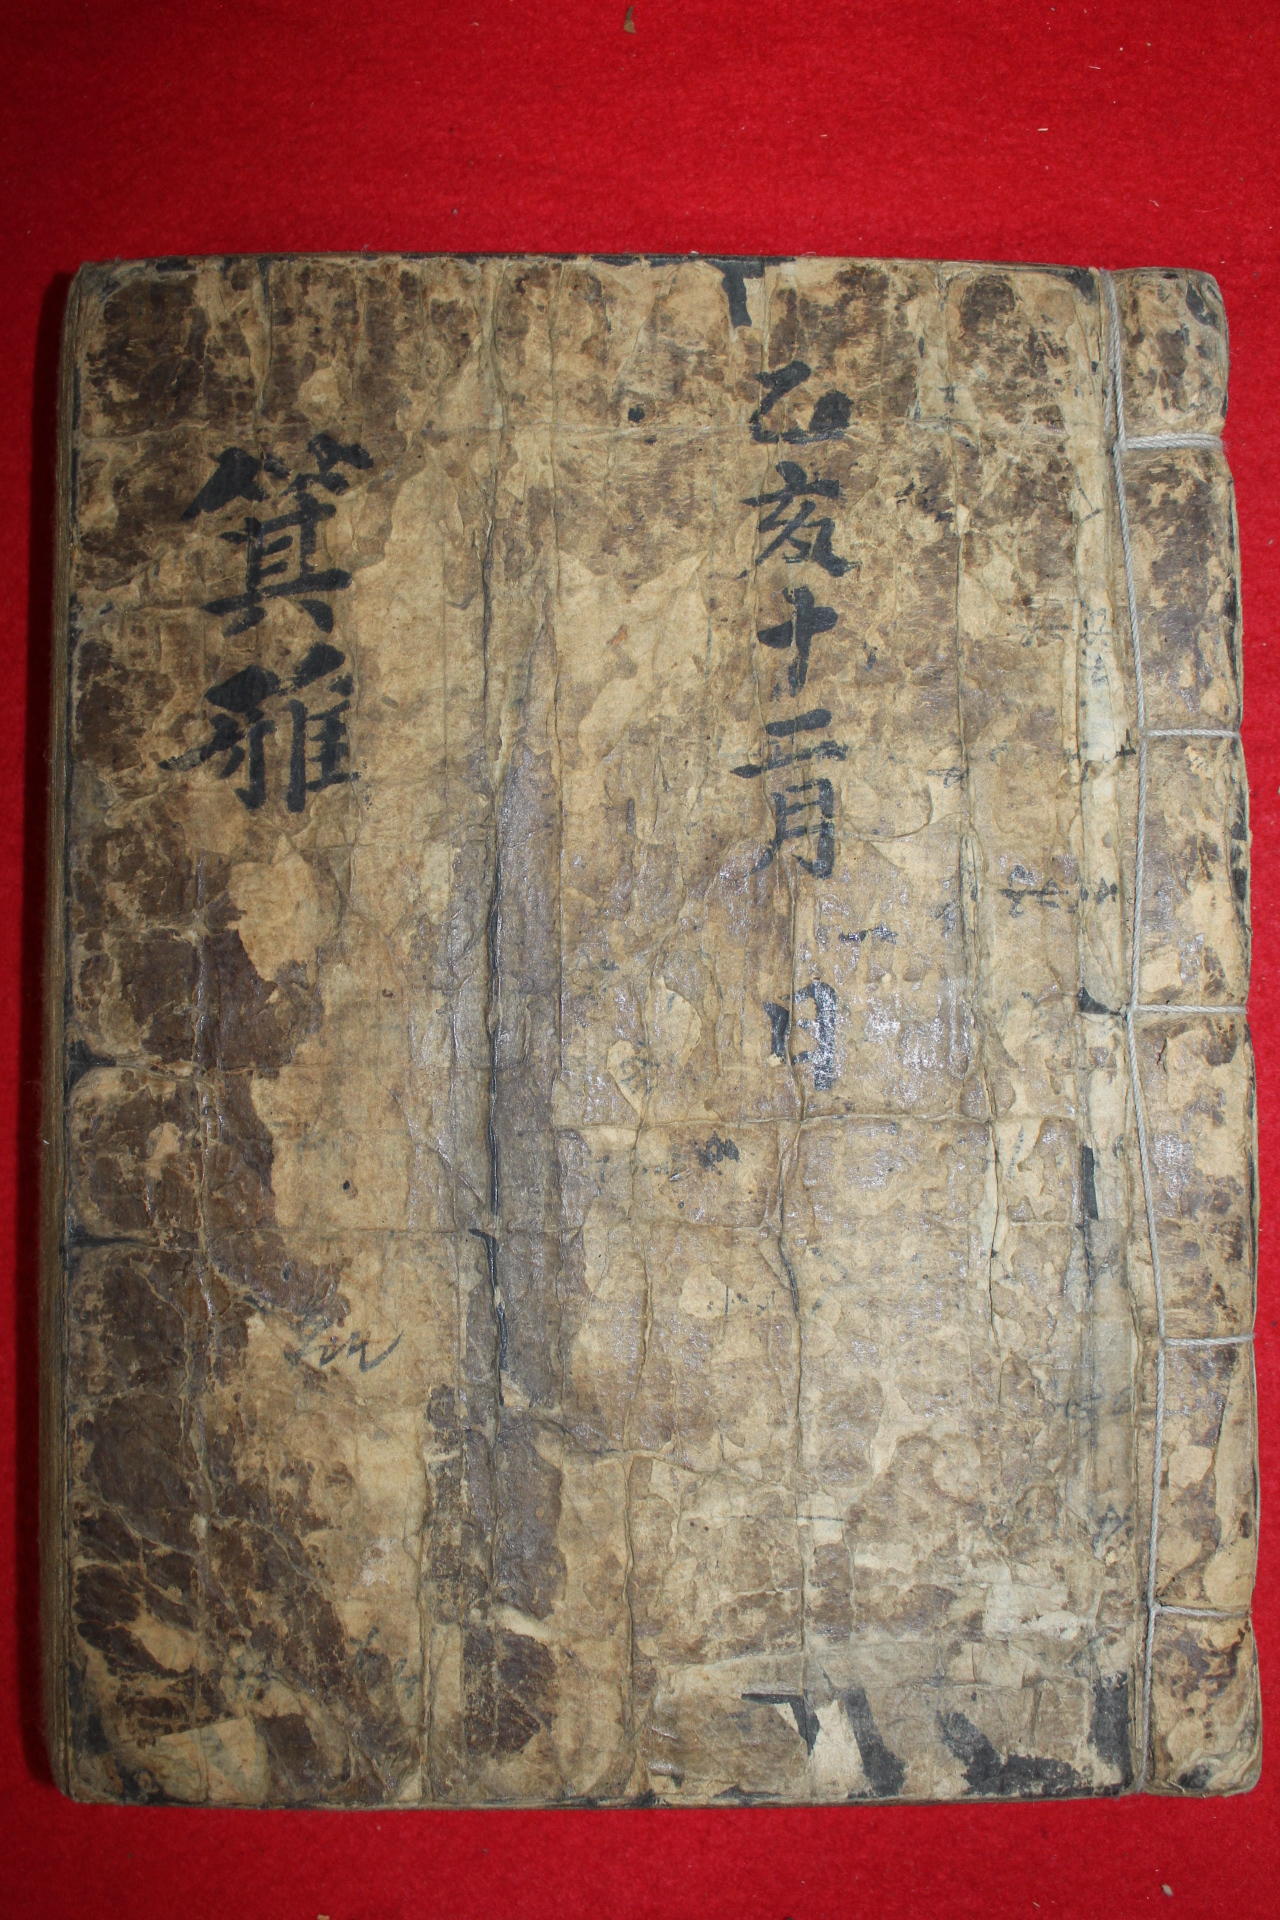 乙亥十二月 日
箕雅